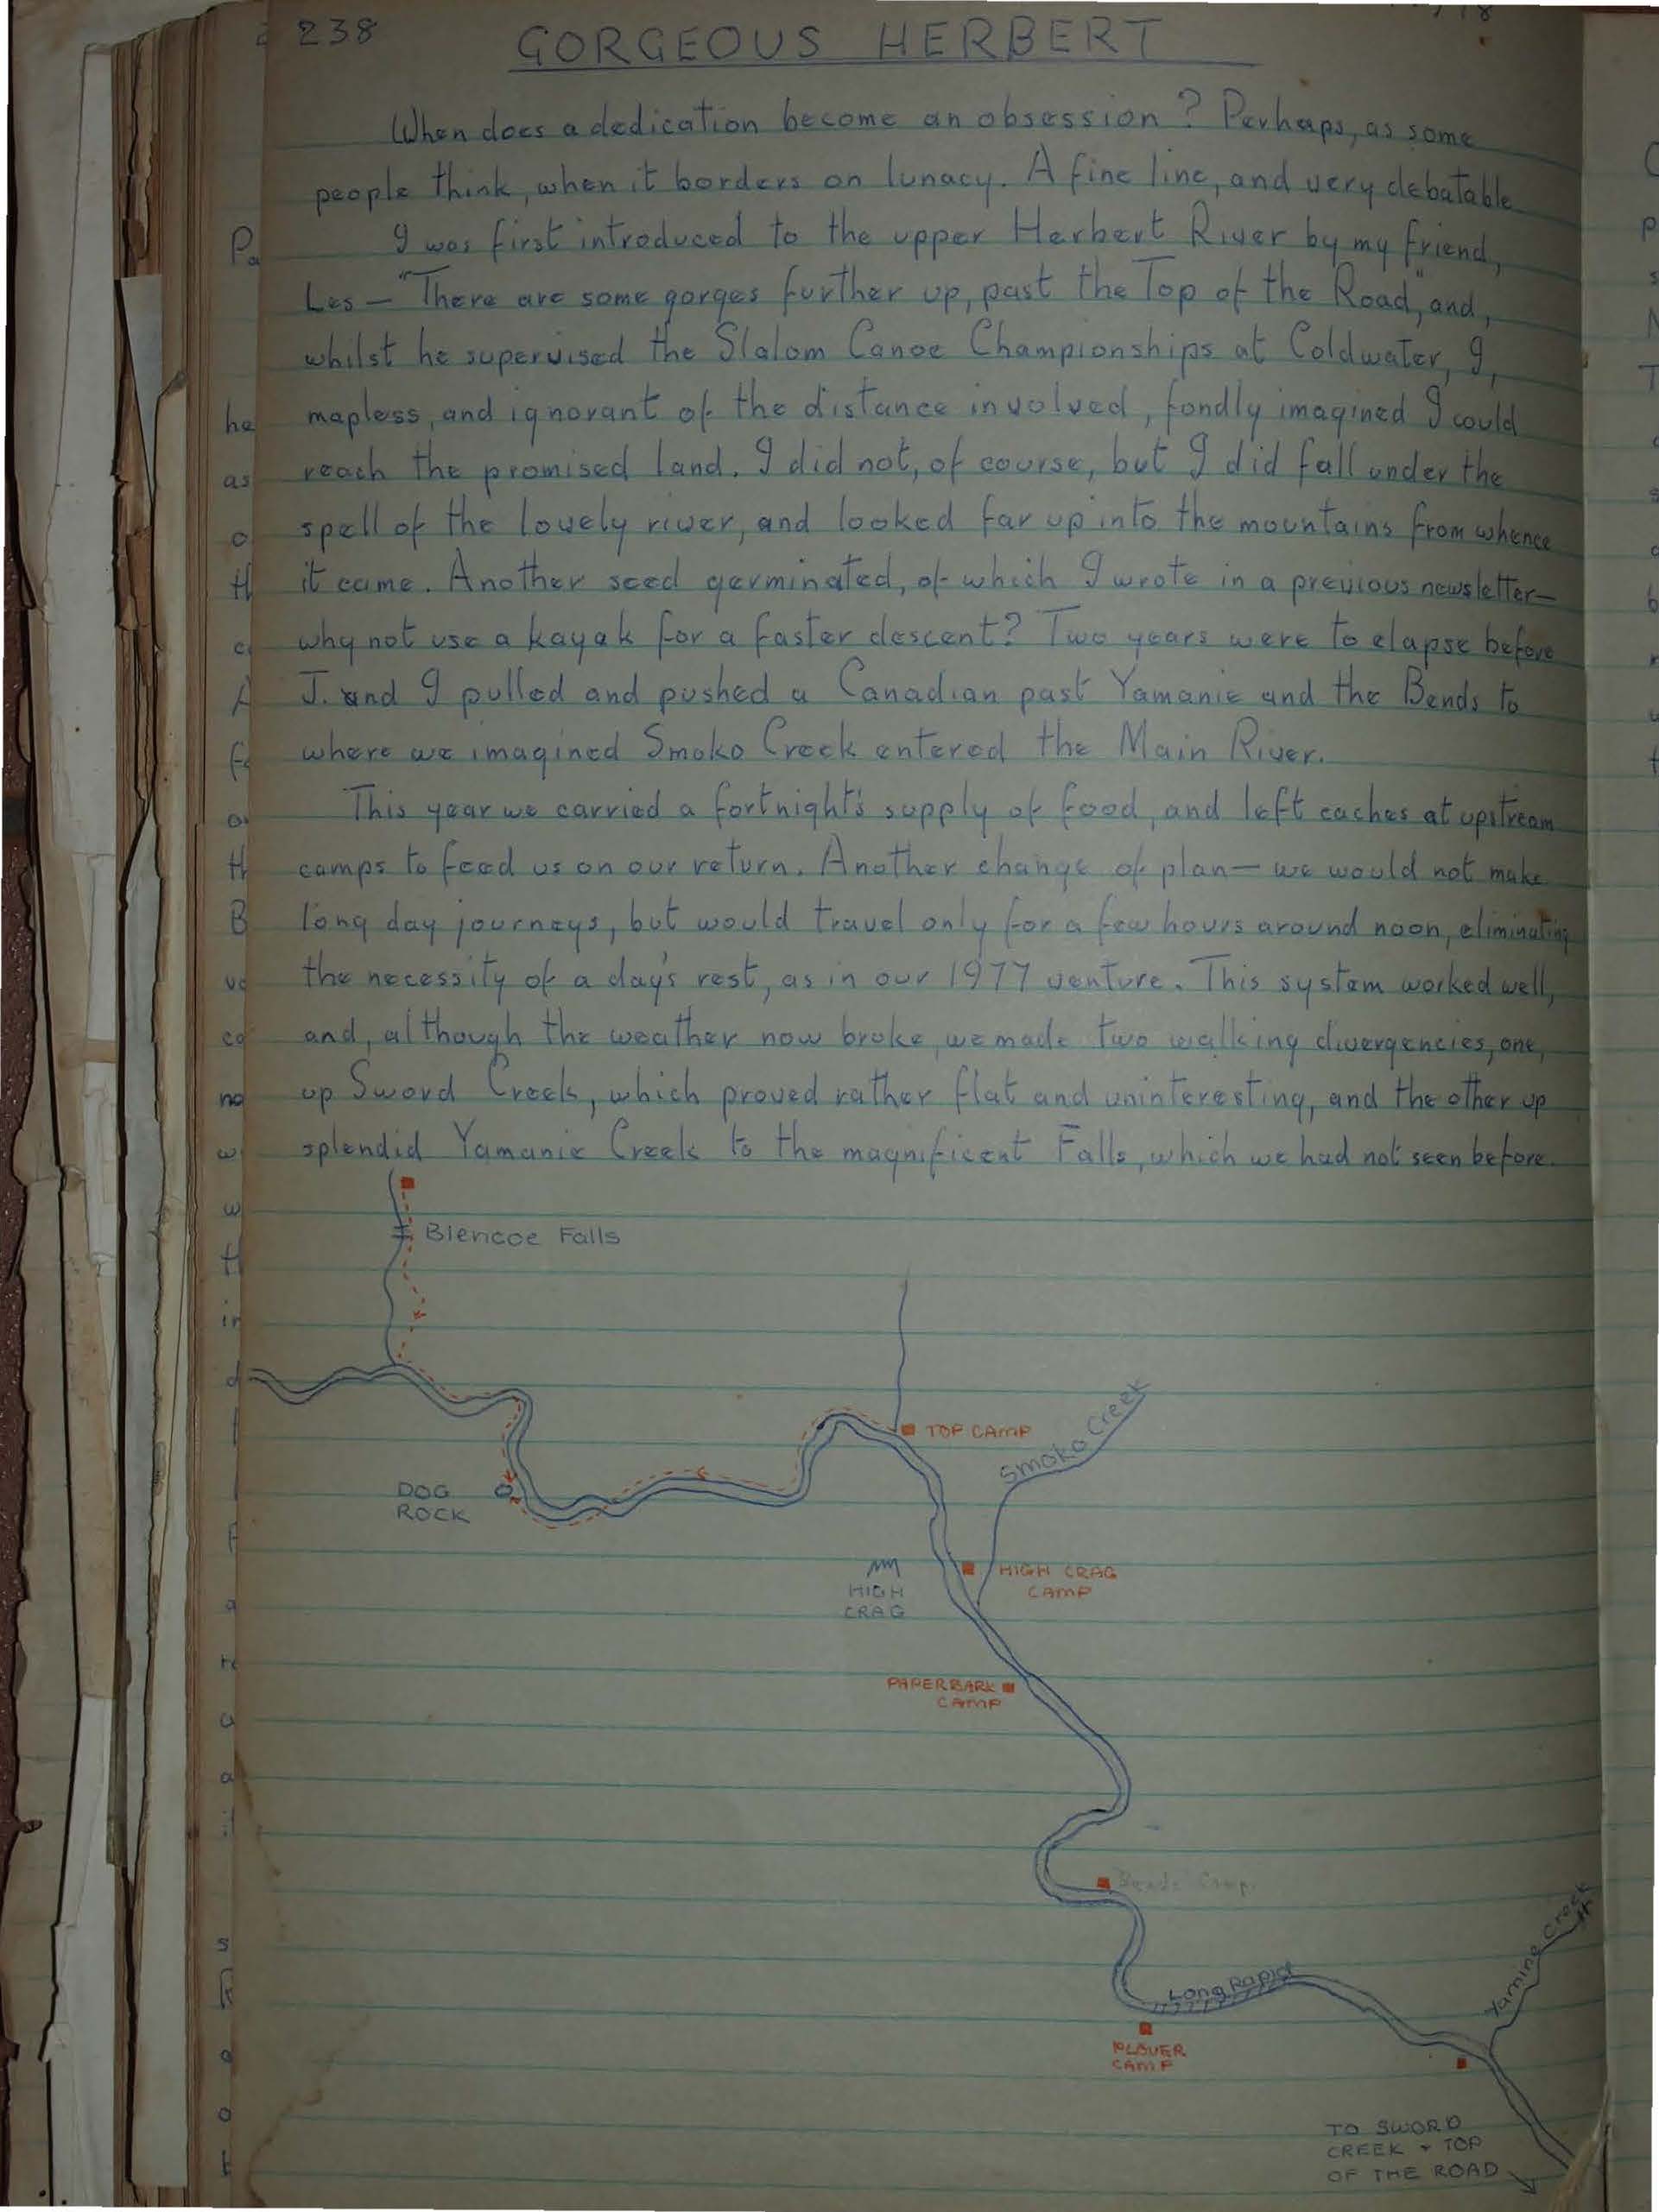 238
GORGEOUS HERBERT
When does a dedication become an obsession? Perhaps, as some
people think, when it borders on lunacy. A fine line, and very debatable
I was first introduced to the upper Herbert River by my friend,
Les — "There are some gorges further up, past the Top of the Road", and,
whilst he supervised the Slalom Canoe Championships at Coldwater, I,
mapless, and ignorant of the distance involved, fondly imagined I could
reach the promised land. I did not, of course, but I did fall under the
spell of the lovely river, and looked far up into the mountains from whence
it came. Another seed germinated, of which I wrote in a previous newsletter—
why not use a kayak for a faster descent? Two years were to elapse before
J. and I pulled and pushed a Canadian past Yamanie and the Bends to
where we imagined Smoko Creek entered the Main River.
This year we carried a fortnight's supply of food, and left caches at upstream
camps to feed us on our return. Another change of plan— we would not make
long day journeys, but would travel only for a few hours around noon, eliminating
the necessity of a day's rest, as in our 1977 venture. This system worked well,
and, although the weather now broke, we made two walking divergencies, one,
up Sword Creek, which proved rather flat and uninteresting, and the other up
splendid Yamanie Creek to the magnificent Falls, which we had not seen before.
Blencoe Falls
TOP CAMP
Smoko Creek
DOG
ROCK
HIGH CRAG
CAMP
HIGH
CRAG
PAPERBARK
CAMP
Bends Camp
Long Rapid
Yamine Creek
PLOVER
CAMP
TO SWORD
CREEK + TOP
OF THE ROAD